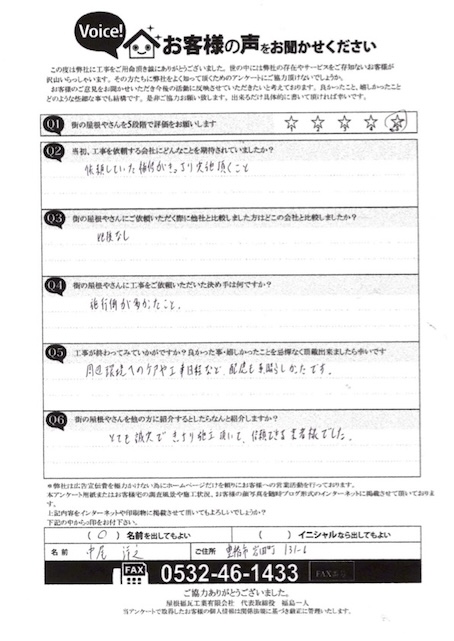 Voice!
お客様の声をお聞かせください
この度は弊社に工事をご用命頂き誠にありがとうございました。世の中には弊社の存在やサービスをご存知ないお客様が
沢山いらっしゃいます。その方たちに弊社をよく知って頂くためのアンケートにご協力頂けないでしょうか。
お客様のご意見をお聞かせいただき今後の活動に反映させていただきたいと考えております。良かったこと、嬉しかったこと
どのような些細な事でも結構です。是非ご協力お願い致します。出来るだけ具体的に書いて頂ければ幸いです。
Q1 街の屋根やさんを5段階で評価をお願いします
Q2 当初、工事を依頼する会社にどんなことを期待されていましたか?
依頼していた補修がきっちり実施頂くこと
Q3 街の屋根やさんにご依頼いただく際に他社と比較しました方はどこの会社と比較しましたか?
比較なし
Q4 街の屋根やさんに工事をご依頼いただいた決め手は何ですか?
が高かったこと。
Q5 工事が終わってみていかがですか?良かった事・嬉しかったことを忌憚なく頂戴出来ましたら幸いです
周辺環境へのケアや工事日程など、配慮も素晴らしかったです。
Q6 街の屋根やさんを他の方に紹介するとしたらなんと紹介しますか?
とても誠実できっちり施工頂いて、信頼できる業者様でした。
*弊社は広告宣伝費を極力かけない為にホームページだけを頼りにお客様への営業活動を行っております。
本アンケート用紙またはお客様宅の調査風景や施工状況、お客様の顔写真を随時ブログ形式のインターネットに掲載させて頂いております。
上記内容をインターネットや印刷物に掲載させて頂いてもよろしいでしょうか?
下記の中から○印をお付下さい。
(○)名前を出してもよい ( )イニシャルなら出してもよい
名前 中尾 ご住所 豊橋市 131-6
FAX 0532-46-1433
ご協力ありがとうございました。
屋根福瓦工業有限会社 代表取締役 福島一人
当アンケートで取得したお客様の個人情報は関係法規に基づき厳正に管理いたします。